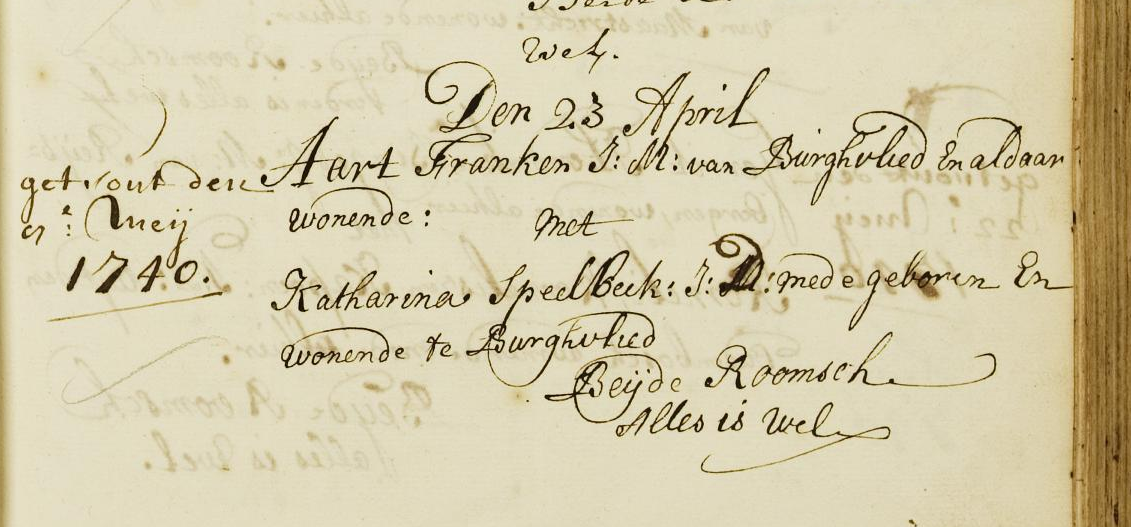 wel.
Den 23 April
Aart Franken J: M: van Burghvlied En aldaar
wonende: Met
Katharina Speelbeek: J: D: mede geboren En
wonende te Burghvlied
Beijde Roomsch
Alles is wel
getrout den
Meij
1740.